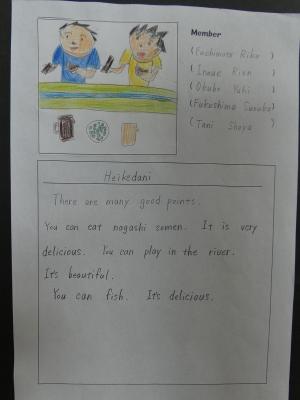 Member
Inoue Rion
Okubo Yuki
Tani Shoya
Heikedani
There are many good points.
You can eat nagashi somen. It is very
delicious. You can play in the river.
It's beautiful.
You can fish. It's delicious.